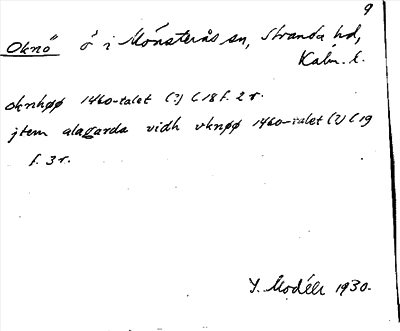 9
Oknö ö i Mönsterås sn, Stranda hd,
Kalm. l.
oknhøø 1460-talet (?) C 18 f. 2 r.
jtem alagarda vidh vknøø 1460-talet (?) C 19
f. 3 r.
Y. Modéer 1930.